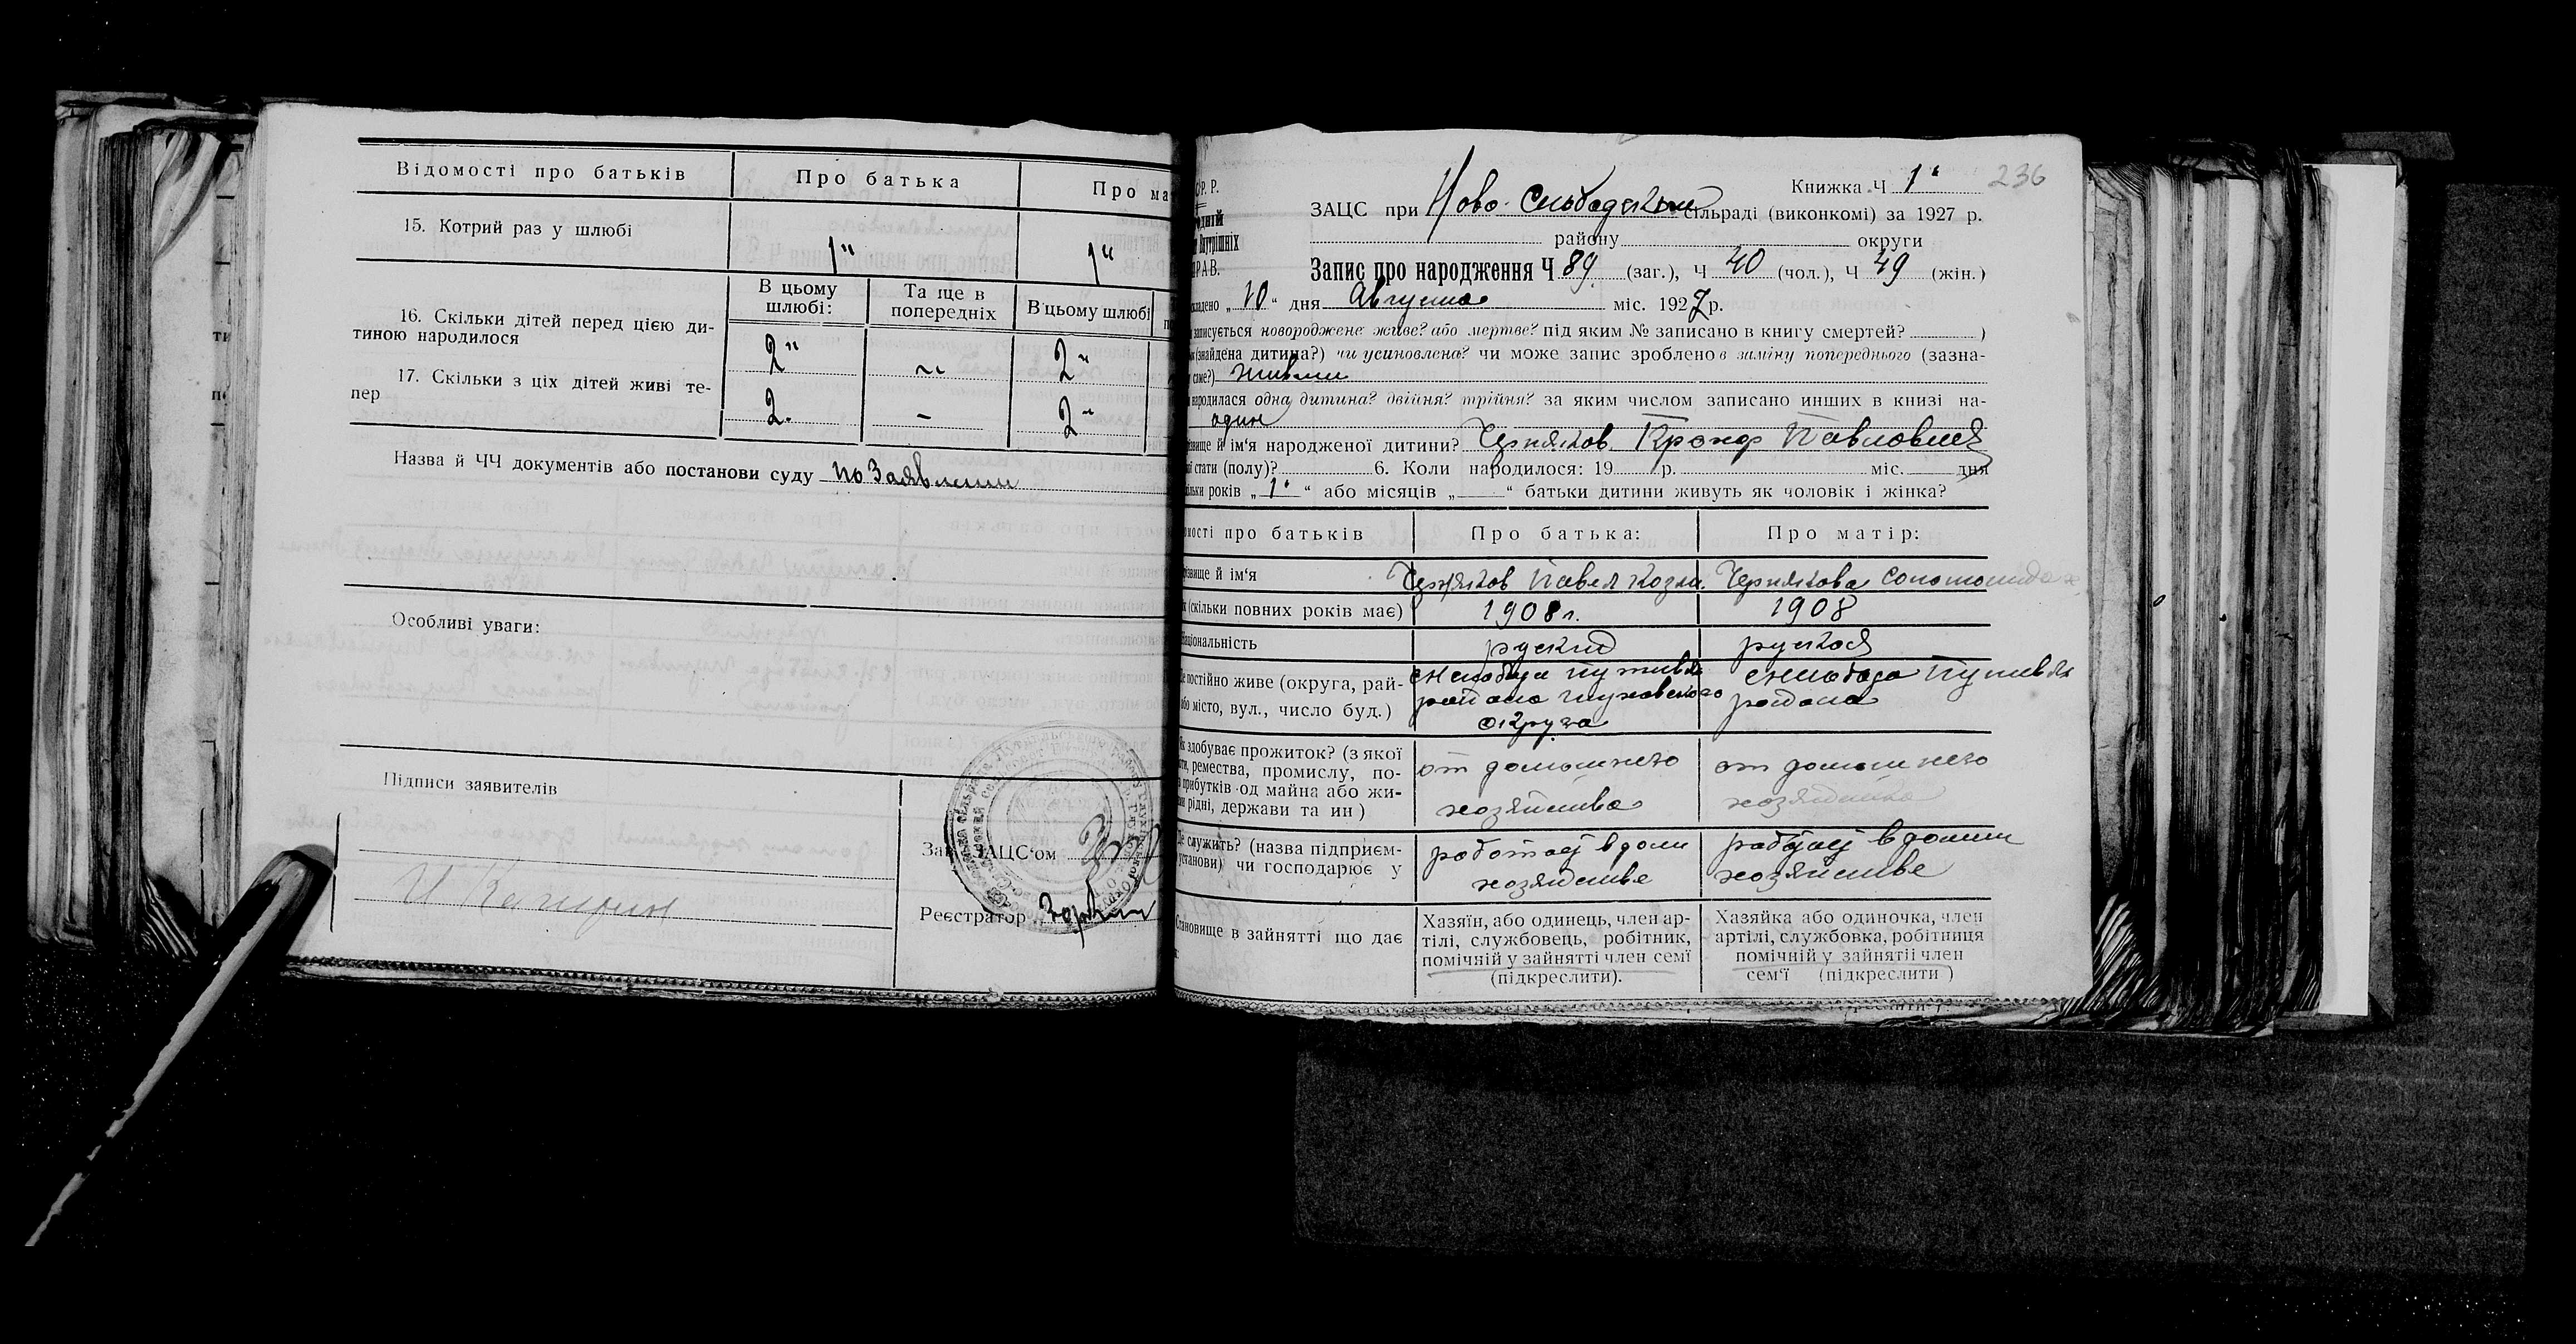 Відомості про батьків
Про батька
Про ма
15. Котрий раз у шлюбі
1"
1"
В цьому шлюбі:
Та ще в попередніх
В цьому шлюбі
16. Скільки дітей перед цією ди-
тиною народилося
2"
"
2"
17. Скільки з ціх дітей живі те-
пер
2.
–
2"
Назва й ЧЧ документів або постанови суду по Заявлении
Особливі уваги:
Підписи заявителів
Зав. ЗАЦС'ом
Реєстратор
236
Книжка Ч 1"
Р. Р.
ЗАЦС при Ново-Слободском сільраді (виконкомі) за 1927 р.
Внутрішніх
району округи
РАВ.
Запис про народження Ч 89 (заг.), Ч 40 (чол.), Ч 49 (жін.)
кладено „10" дня Августа міс. 1927 р.
записується новороджене живе? або мертве? під яким № записано в книгу смертей? )
(знайдена дитина?) чи усиновлена? чи може запис зроблено в заміну попереднього (зазна-
саме?) живым
народилася одна дитина? двійня? трійня? за яким числом записано инших в книзі на-
один
звище й ім'я народженої дитини? Черняков Павлович
стати (полу)? 6. Коли народилося: 19 р. міс. дня
ільки років „1" або місяців „ " батьки дитини живуть як чоловік і жінка?
мості про батьків
Про батька:
Про матір:
звище й ім'я
Черняков Павел Козма
Чернякова
(скільки повних років має)
1908 г.
1908
аціональність
руский
руская
постійно живе (округа, рай-
або місто, вул., число буд.)
Н слобода Путивль
района Глуховского
округа
Н слобода Путивля
района
Як здобуває прожиток? (з якої
ти, ремества, промислу, по-
прибутків од майна або жи-
рідні, держави та ин)
от домашнего
хозяйства
от домашнего
хозяйства
Де служить? (назва підприєм-
установи) чи господарює у
работает в дом
хозяйстве
работает в домаш
хозяйстве
Становище в зайнятті що дає
Хазяїн, або одинець, член ар-
тілі, службовець, робітник,
помічній у зайнятті член семї
(підкреслити).
Хазяйка або одиночка, член
артілі, службовка, робітниця
помічній у зайнятії член
сем'ї (підкреслити)